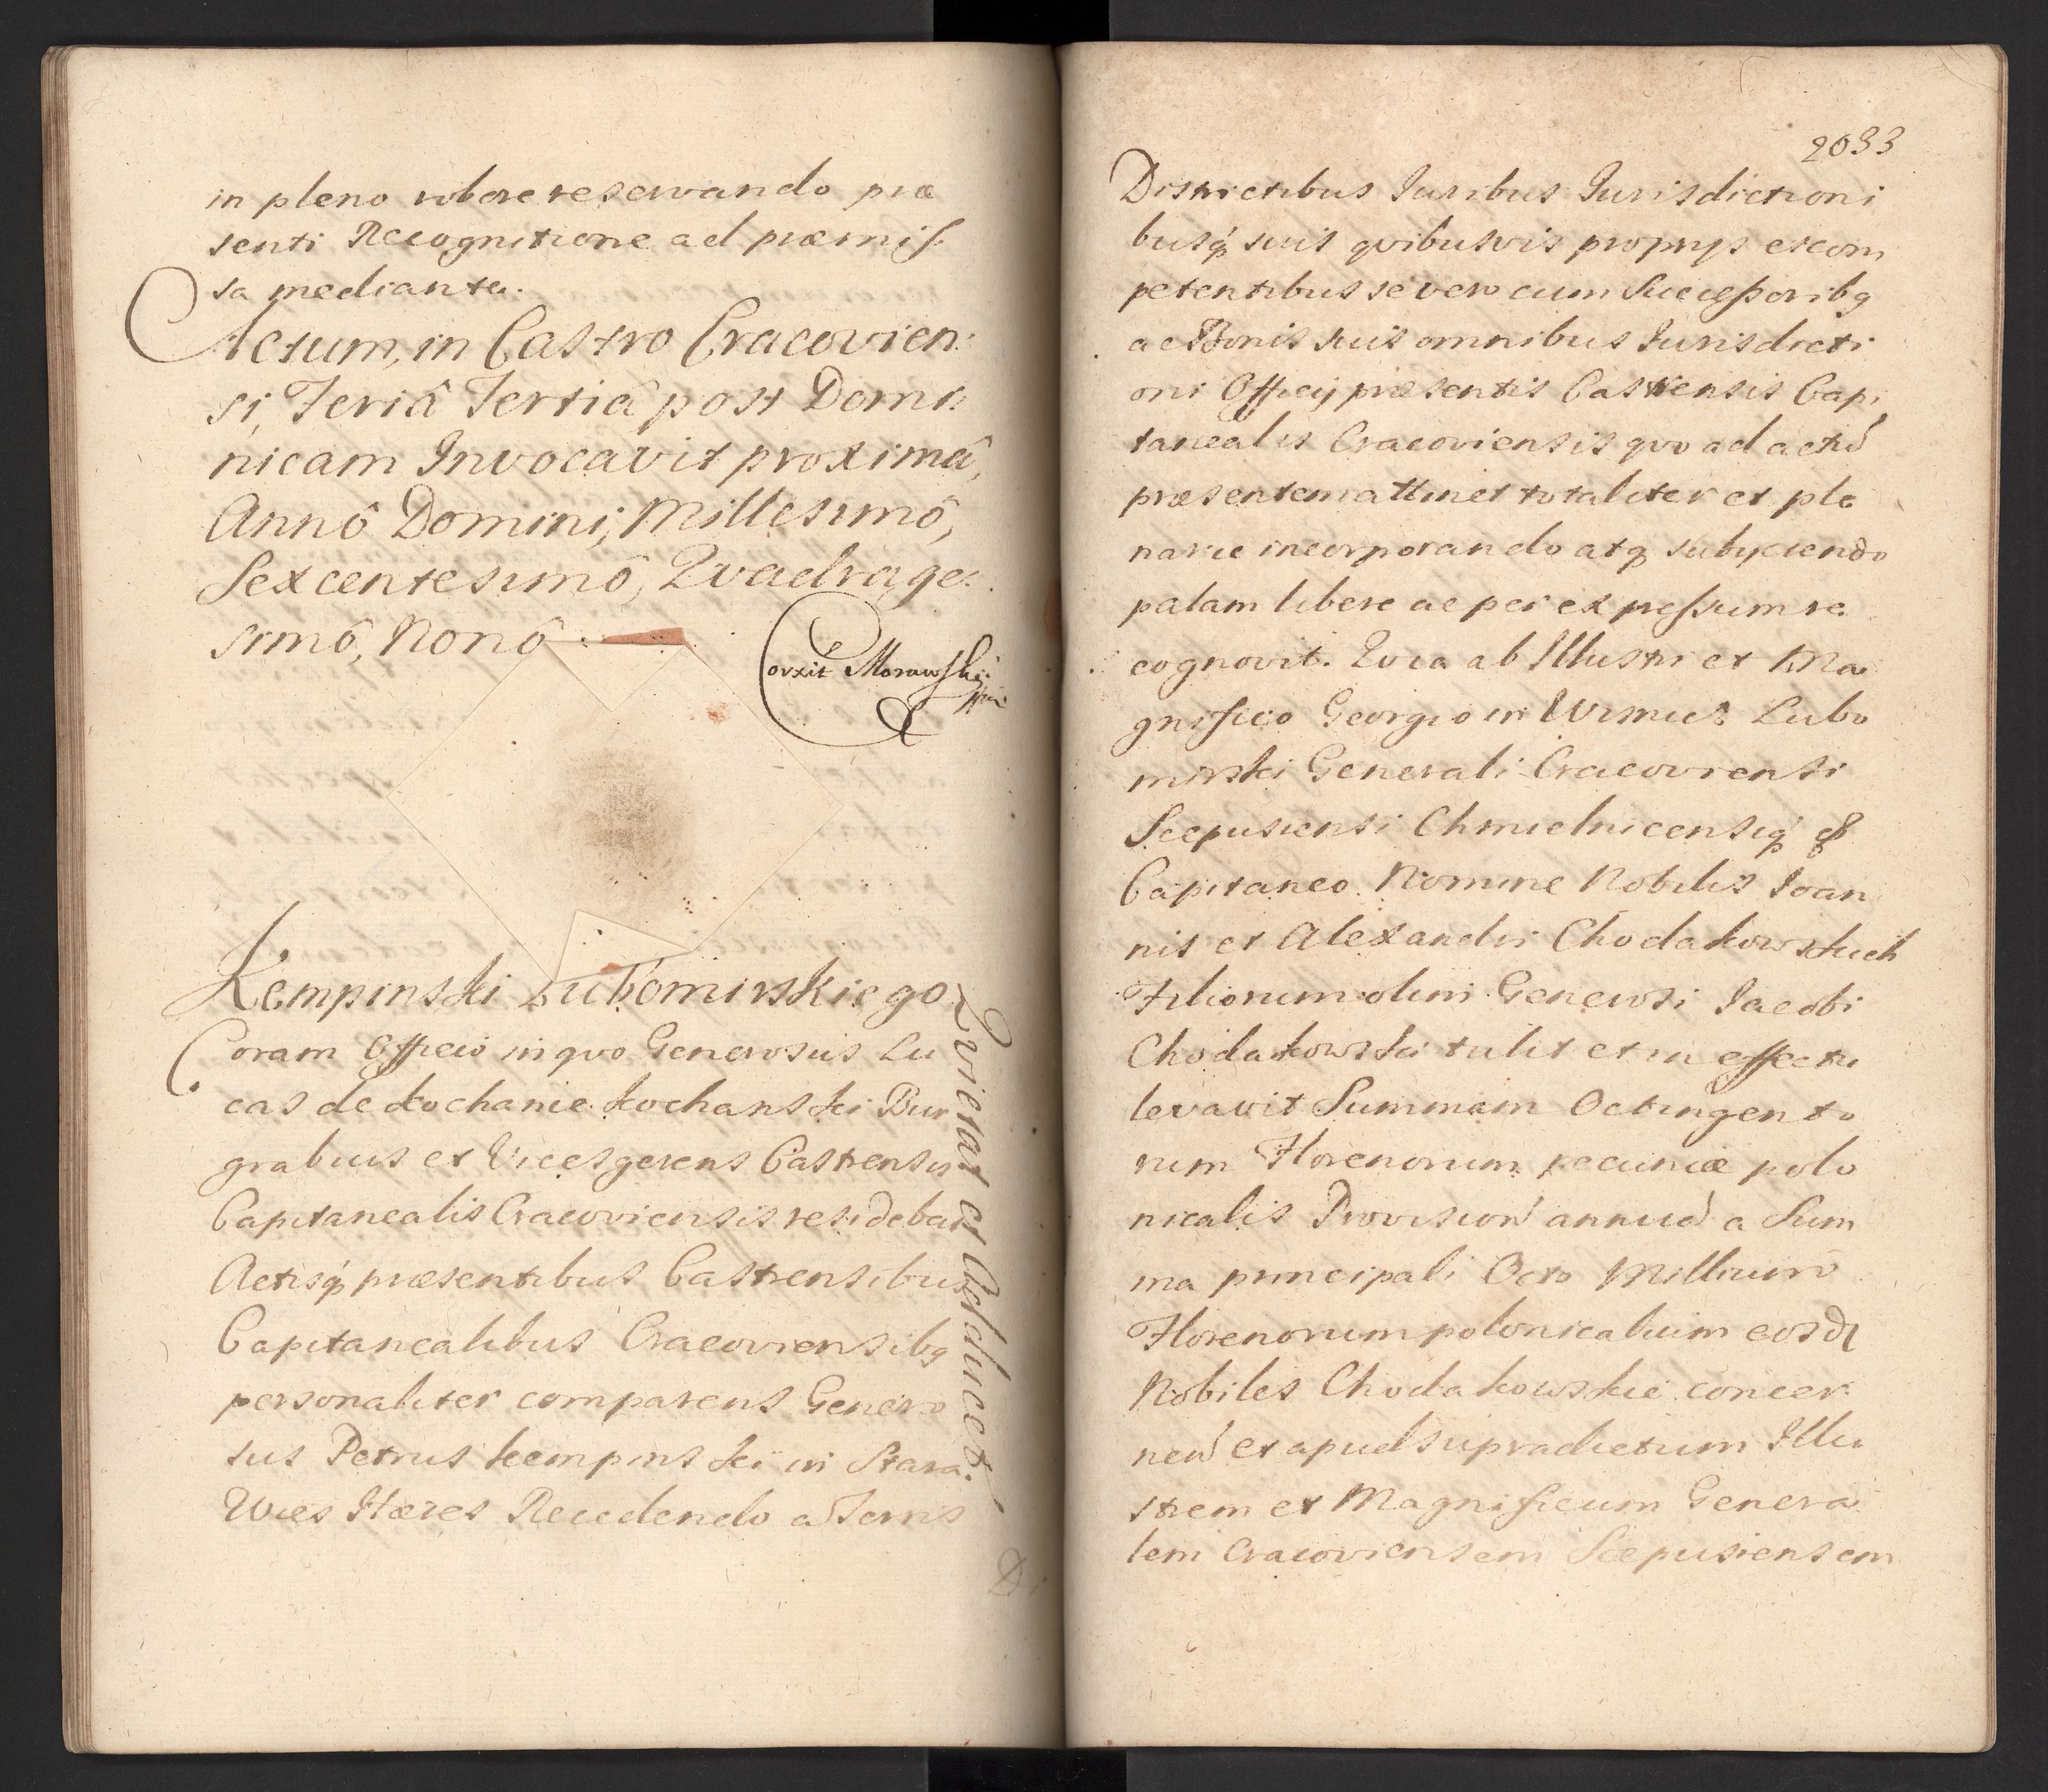 in pleno robore reservando præ
senti Recognitione ad præmiſ:
sa mediante.
Actum, in Castro Cracovien:
si, Feriâ Tertiâ post Domi:
nicam Invocavit proximâ,
Annô Domini, Millesimô,
Sexcentesimô, Qvadrage:
simô, Nonô
Corxit Morawſki
mpp
Kempinski Lubomirskiego
Coram Officio in qvo Generosus Lu
cas de Kochanie Kochanski Bur
grabius et Vicesgerens Castrensis
Capitanealis Cracoviensis residebat
Actisq́ præsentibus Castrensibus
Capitanealibus Cracoviensibq
personaliter comparens Genero
sus Petrus Kempinski in Stara
Wies Hæres Recedendo a Terris
Qvietat et Abducet.
Di
2033
Districtibus Iuribus Iurisdictioni
busq́ suis qvibusvis proprijs et com
petentibus se vero cum Succeſsoribq
ac Bonis suis omnibus Iurisdicti
oni Officij præsentis Castrensis Capi
tanealis Cracoviensis qvo ad actú
præsentem attinet totaliter et ple
narie incorporando atq subijciendo
palam libere ac per expreſsum re
cognovit. Qvia ab Illustri et Ma
gnifico Georgio in Wisnicz Lubo
mirski Generali Cracoviensi
Scepusiensi Chmielnicensiq́ &
Capitaneo. Nomine Nobilis Ioan
nis et Alexandri Chodakowskich
Filiorum olim Generosi Iacobi
Chodakowski tulit et in effectu
levavit Summam Octingento
rum Florenorum pecuniæ polo
nicalis Provision̄ annuā a Sum
ma principali Octo Millium
Florenorum polonicalium eosd
Nobiles Chodakowskie concer
nen̄ et apud supradictum Illu
strem et Magnificum Genera
lem Cracoviensem Scepusiensem